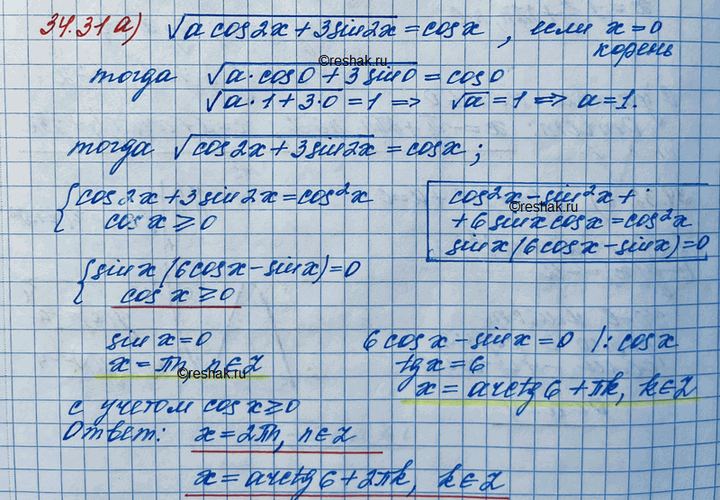 34.31 а) √(a cos2x + 3sin2x) = cosx, если x=0
корень
тогда √(a·cos0 + 3 sin0) = cos0
©reshak.ru
√(a·1+3·0) = 1 => √a = 1 => a=1.
тогда √(cos2x + 3sin2x) = cosx;
{cos2x + 3 sin2x = cos²x
cosx ≥ 0
cos²x - sin²x +
©reshak.ru
+ 6 sinx cosx = cos²x
sinx (6cosx - sinx) = 0
{sinx (6cosx - sinx) = 0
cosx ≥ 0
sinx = 0
x = πn, n∈Z
©reshak.ru
6cosx - sinx = 0 /: cosx
tgx = 6
x = arctg6 + πk, k∈Z
с учетом cosx ≥ 0
Ответ: x = 2πn, n∈Z
x = arctg6 + 2πk, k∈Z